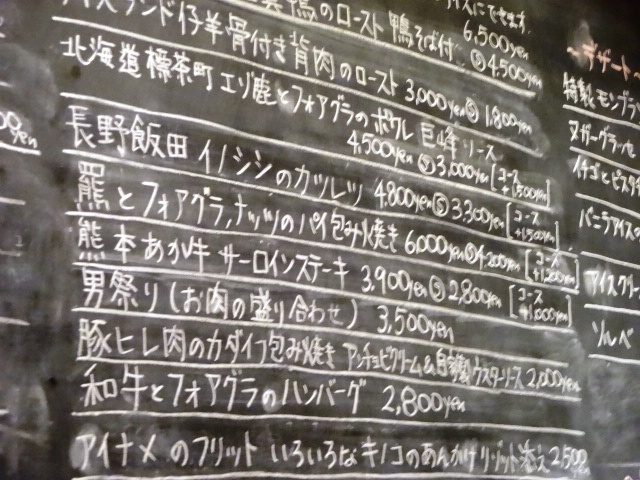 のロースト 鴨そば付 6,500yen Ⓢ4,500yen
仔羊骨付き背肉のロースト 3,000yen Ⓢ1,800yen
北海道標茶町 エゾ鹿とフォアグラのポワレ 巨峰ソース
4,500yen Ⓢ3,000yen [コース +1,500yen]
長野飯田 イノシシのカツレツ 4,800yen Ⓢ3,300yen [コース +1,500yen]
羆とフォアグラ,ナッツのパイ包み焼き 6,000yen Ⓢ4,200yen [コース +1,200yen]
熊本あか牛 サーロインステーキ 3,900yen Ⓢ2,800yen [コース +1,000yen]
男祭り(お肉の盛り合わせ) 3,500yen
豚ヒレ肉のカダイフ包み焼き アンチョビクリーム&自家製ウスターソース 2,000yen
和牛とフォアグラのハンバーグ 2,800yen
アイナメのフリット いろいろなキノコのあんかけリゾット添え 2,500yen
~デザート
特製モンブラン
ヌガーグラッセ
イチゴとピスタチ
バニラアイスの
アイスクリー
ソルベ